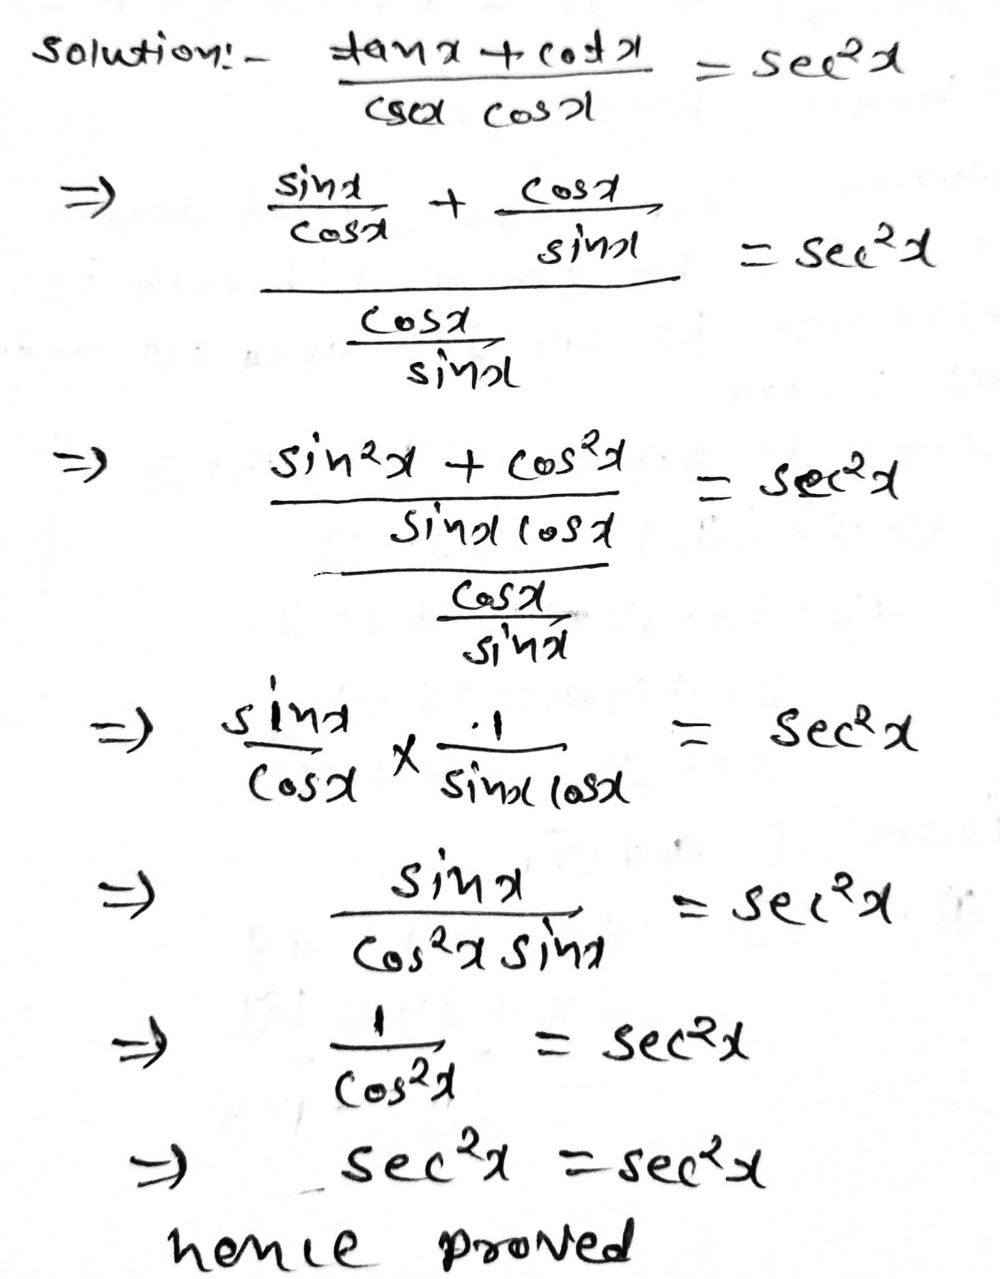 Solution:- (tanx + cotx)/(cscx cosx) = sec²x
⇒ (sinx/cosx + cosx/sinx)/(cosx/sinx) = sec²x
⇒ ((sin²x + cos²x)/(sinx cosx))/(cosx/sinx) = sec²x
⇒ sinx/cosx × 1/(sinx cosx) = sec²x
⇒ sinx/(cos²x sinx) = sec²x
⇒ 1/cos²x = sec²x
⇒ sec²x = sec²x
hence proved